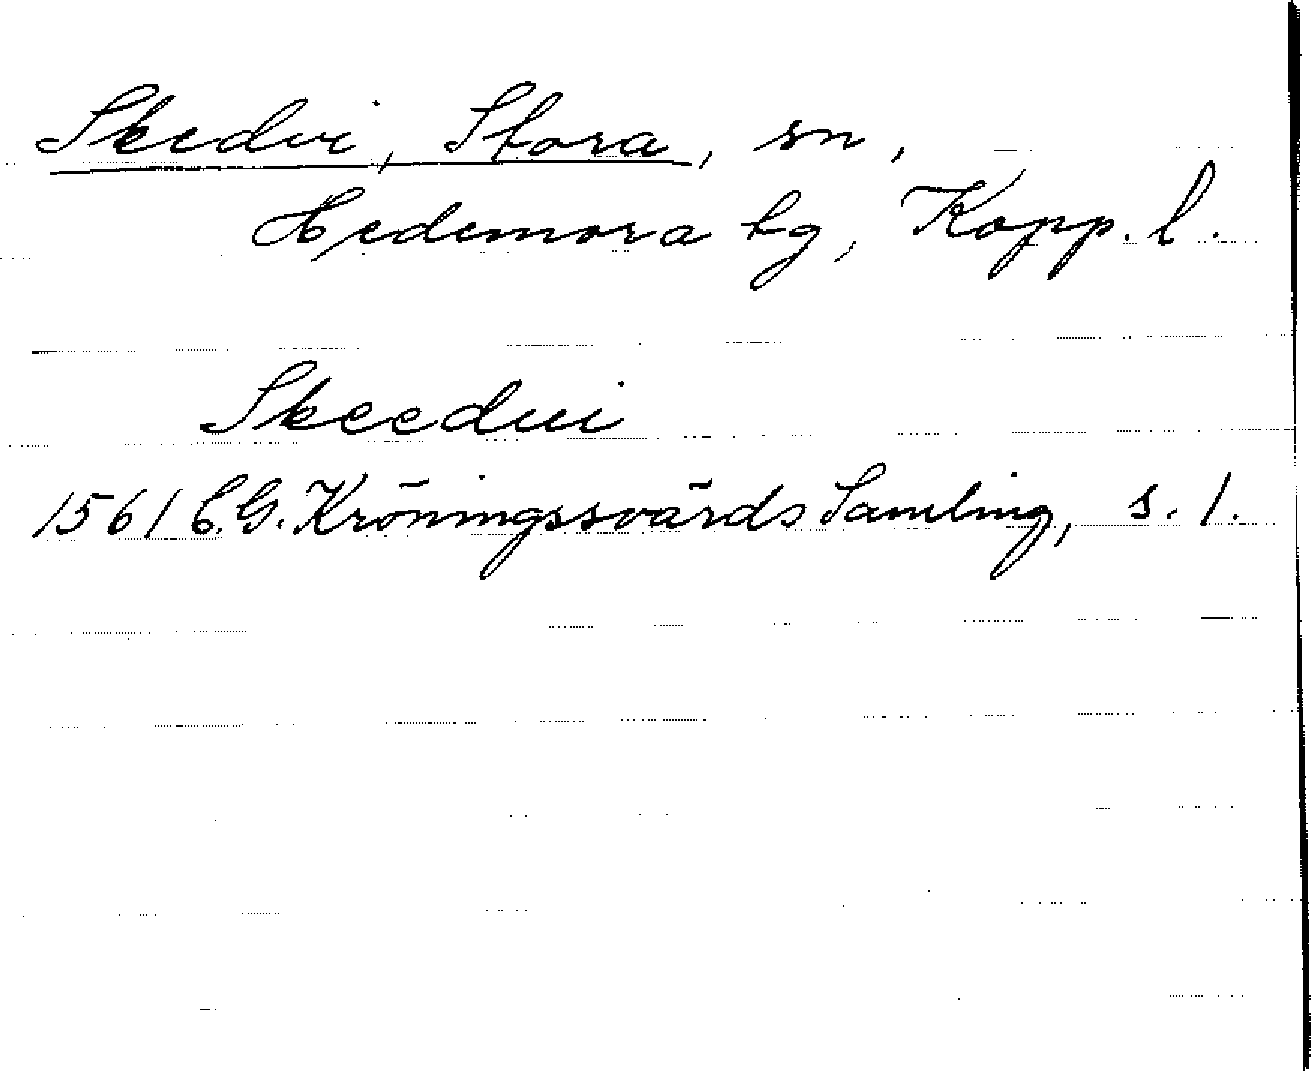 Skedvi, Stora, sn,
Hedemora tg, Kopp. l.
Skeedui
1561 C.G. Kröningssvärds Samling, s. 1.